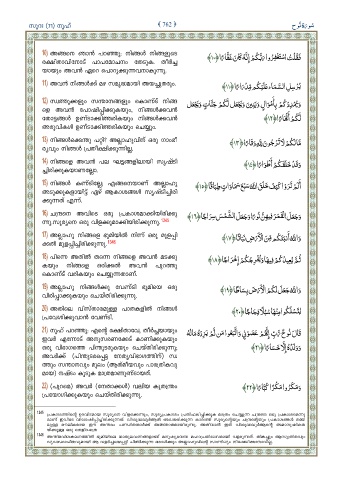 സൂറ (71) നൂഹ്
﴾ 762 ﴿
سُورَةُ نُوحٍ
10) അങ്ങനെ ഞാൻ പറഞ്ഞു: നിങ്ങൾ നിങ്ങളുടെ
രക്ഷിതാവിനോട് പാപമോചനം തേടുക. തീർച്ച
യായും അവൻ ഏറെ പൊറുക്കുന്നവനാകുന്നു.
فَقُلْتُ اسْتَغْفِرُوا رَبَّكُمْ إِنَّهُ كَانَ غَفَّارًا ﴿١٠﴾
11) അവൻ നിങ്ങൾക്ക് മഴ സമൃദ്ധമായി അയച്ചുതരും.
يُرْسِلِ السَّمَاءَ عَلَيْكُمْ مِدْرَارًا ﴿١١﴾
12) സ്വത്തുക്കളും സന്താനങ്ങളും കൊണ്ട് നിങ്ങ
ളെ അവൻ പോഷിപ്പിക്കുകയും, നിങ്ങൾക്കവൻ
തോട്ടങ്ങൾ ഉണ്ടാക്കിത്തരികയും നിങ്ങൾക്കവൻ
അരുവികൾ ഉണ്ടാക്കിത്തരികയും ചെയ്യും.
وَيُمْدِدْكُمْ بِأَمْوَالٍ وَبَنِينَ وَيَجْعَلْ لَكُمْ جَنَّاتٍ وَيَجْعَلْ
لَكُمْ أَنْهَارًا ﴿١٢﴾
13) നിങ്ങൾക്കെന്തു പറ്റി? അല്ലാഹുവിന് ഒരു ഗാംഭീ
ര്യവും നിങ്ങൾ പ്രതീക്ഷിക്കുന്നില്ല.
مَا لَكُمْ لَا تَرْجُونَ لِلَّهِ وَقَارًا ﴿١٣﴾
14) നിങ്ങളെ അവൻ പല ഘട്ടങ്ങളിലായി സൃഷ്ടി
ച്ചിരിക്കുകയാണല്ലോ.
وَقَدْ خَلَقَكُمْ أَطْوَارًا ﴿١٤﴾
15) നിങ്ങൾ കണ്ടില്ലേ; എങ്ങനെയാണ് അല്ലാഹു
അടുക്കുകളായിട്ട് ഏഴ് ആകാശങ്ങൾ സൃഷ്ടിച്ചിരി
ക്കുന്നത് എന്ന്.
أَلَمْ تَرَوْا كَيْفَ خَلَقَ اللَّهُ سَبْعَ سَمَاوَاتٍ طِبَاقًا ﴿١٥﴾
16) ചന്ദ്രനെ അവിടെ ഒരു പ്രകാശമാക്കിയിരിക്കു
ന്നു.സൂര്യനെ ഒരു വിളക്കുമാക്കിയിരിക്കുന്നു.
وَجَعَلَ الْقَمَرَ فِيهِنَّ نُورًا وَجَعَلَ الشَّمْسَ سِرَاجًا ﴿١٦﴾
17) അല്ലാഹു നിങ്ങളെ ഭൂമിയിൽ നിന്ന് ഒരു മുളപ്പി
ക്കൽ മുളപ്പിച്ചിരിക്കുന്നു.
وَاللَّهُ أَنْبَتَكُمْ مِنَ الْأَرْضِ نَبَاتًا ﴿١٧﴾
18) പിന്നെ അതിൽ തന്നെ നിങ്ങളെ അവൻ മടക്കു
കയും നിങ്ങളെ ഒരിക്കൽ അവൻ പുറത്തു
കൊണ്ട് വരികയും ചെയ്യുന്നതാണ്.
ثُمَّ يُعِيدُكُمْ فِيهَا وَيُخْرِجُكُمْ إِخْرَاجًا ﴿١٨﴾
19) അല്ലാഹു നിങ്ങൾക്കു വേണ്ടി ഭൂമിയെ ഒരു
വിരിപ്പാക്കുകയും ചെയ്തിരിക്കുന്നു.
وَاللَّهُ جَعَلَ لَكُمُ الْأَرْضَ بِسَاطًا ﴿١٩﴾
20) അതിലെ വിസ്താരമുള്ള പാതകളിൽ നിങ്ങൾ
പ്രവേശിക്കുവാൻ വേണ്ടി.
لِتَسْلُكُوا مِنْهَا سُبُلًا فِجَاجًا ﴿٢٠﴾
21) നൂഹ് പറഞ്ഞു: എന്റെ രക്ഷിതാവേ, തീർച്ചയായും
ഇവർ എന്നോട് അനുസരണക്കേട് കാണിക്കുകയും
ഒരു വിഭാഗത്തെ പിന്തുടരുകയും ചെയ്തിരിക്കുന്നു;
അവർക്ക് (പിന്തുടരപ്പെട്ട നേതൃവിഭാഗത്തിന്) സ്വ
ത്തും സന്താനവും മൂലം (ആത്മീയവും പാരത്രികവു
മായ) നഷ്ടം കൂടുക മാത്രമാണുണ്ടായത്.
قَالَ نُوحٌ رَبِّ إِنَّهُمْ عَصَوْنِي وَاتَّبَعُوا مَنْ لَمْ يَزِدْهُ مَالُهُ
وَوَلَدُهُ إِلَّا خَسَارًا ﴿٢١﴾
22) (പുറമെ) അവർ (നേതാക്കൾ) വലിയ കുതന്ത്രം
പ്രയോഗിക്കുകയും ചെയ്തിരിക്കുന്നു.
وَمَكَرُوا مَكْرًا كُبَّارًا ﴿٢٢﴾